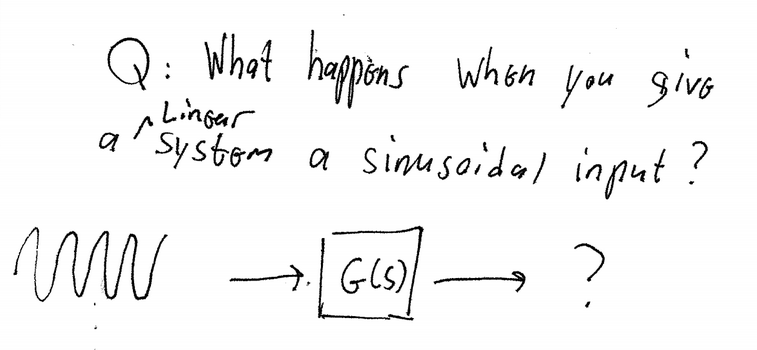 Q: What happens when you give
a ^ Linear
system a sinusoidal input?
G(s) ?